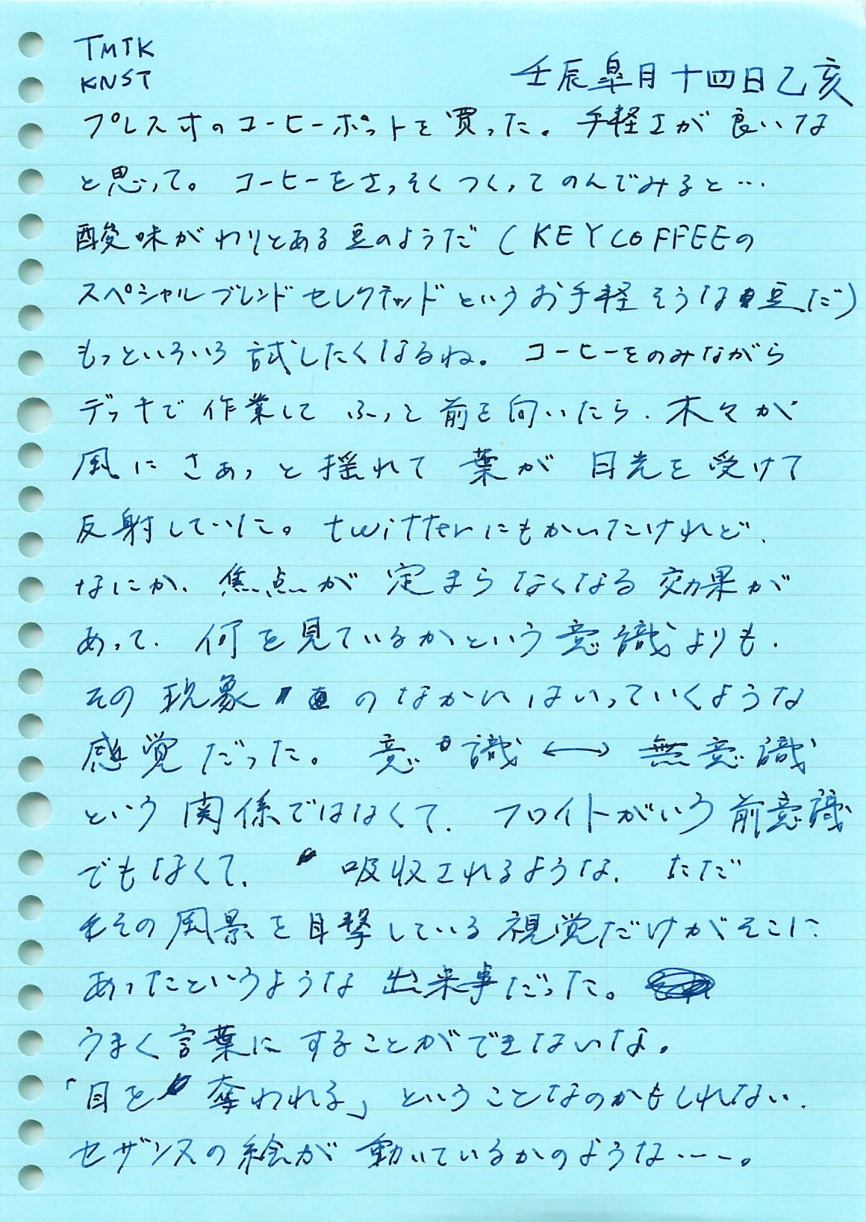 TMTK
KNST
壬辰皐月十四日乙亥
プレス式のコーヒーポットを買った。手軽さが良いな
と思って。コーヒーをさっそくつくってのんでみると…
酸味がわりとある豆のようだ（KEY COFFEEの
スペシャルブレンドセレクテッドというお手軽そうな豆だ）
もっといろいろ試したくなるね。コーヒーをのみながら
デッキで作業して ふっと前を向いたら、木々が
風にさぁっと揺れて 葉が 日光を受けて
反射していた。twitterにもかいたけれど、
なにか、焦点が定まらなくなる効果が
あって、何を見ているかという意識よりも、
その現象のなかにはいっていくような
感覚だった。意識 ⟷ 無意識
という関係ではなくて、フロイトがいう前意識
でもなくて、吸収されるような、ただ
その風景を目撃している視覚だけがそこに
あったというような出来事だった。
うまく言葉にすることができないな。
「目を奪われる」ということなのかもしれない、
セザンヌの絵が動いているかのような---。